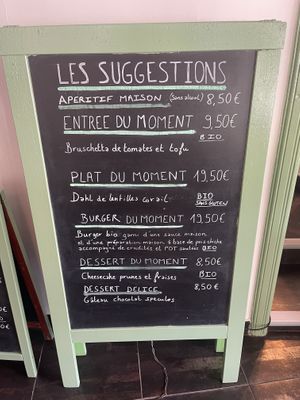 LES SUGGESTIONS
APERITIF MAISON (sans alcool) 8,50€
ENTREE DU MOMENT 9,50€
BIO
Bruschetta de tomates et tofu
PLAT DU MOMENT 19,50€
Dahl de lentilles corail BIO
SANS GLUTEN
BURGER DU MOMENT 19,50€
Burger bio garni d'une sauce maison
et d'une préparation maison à base de pois chiche
accompagné de crudités et PDT sautées BIO
DESSERT DU MOMENT 8,50€
Cheesecake prunes et fraises BIO
DESSERT DELICE 8,50€
Gâteau chocolat speculos